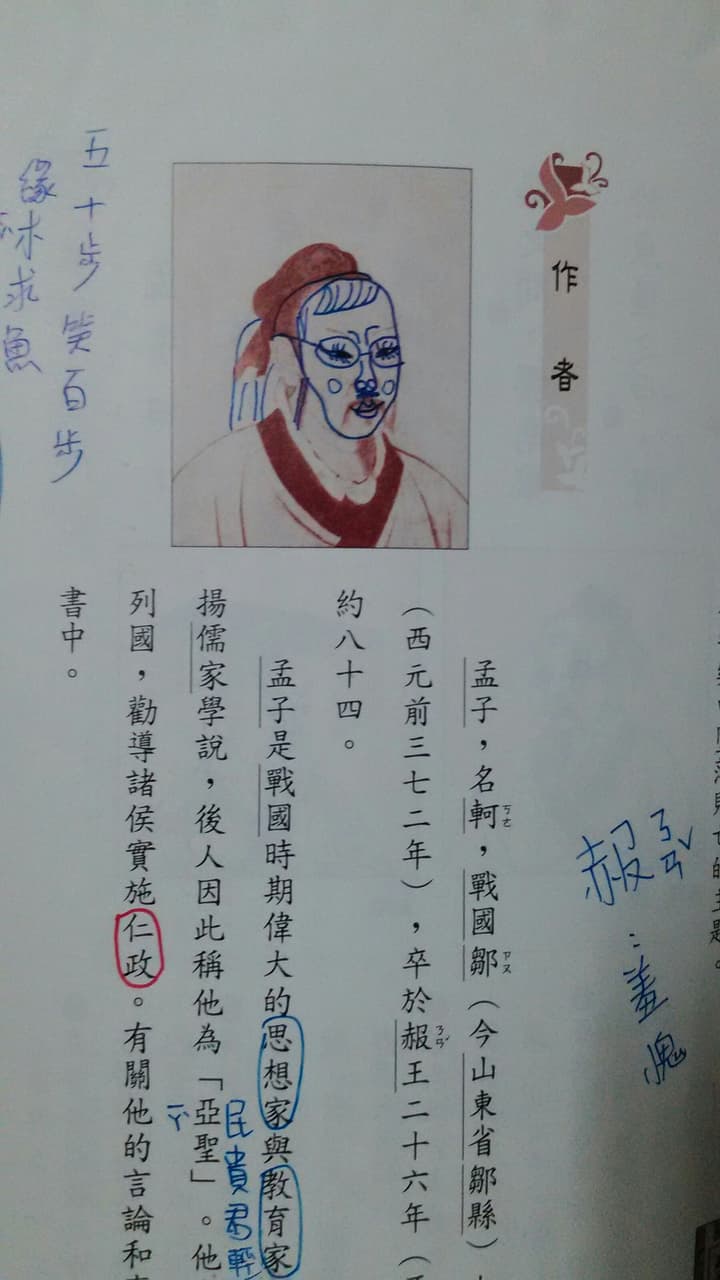 作者
赧 ㄋㄢˇ
：羞愧
孟子，名軻，戰國鄒（今山東省鄒縣）
ㄎㄜ
ㄗㄡ
（西元前三七二年），卒於赧王二十六年（
ㄋㄢˇ
約八十四。
孟子是戰國時期偉大的思想家與教育家
民貴君輕
揚儒家學說，後人因此稱他為「亞聖」。他
ㄧㄚˋ
列國，勸導諸侯實施仁政。有關他的言論和
書中。
五十步笑百步
緣木求魚